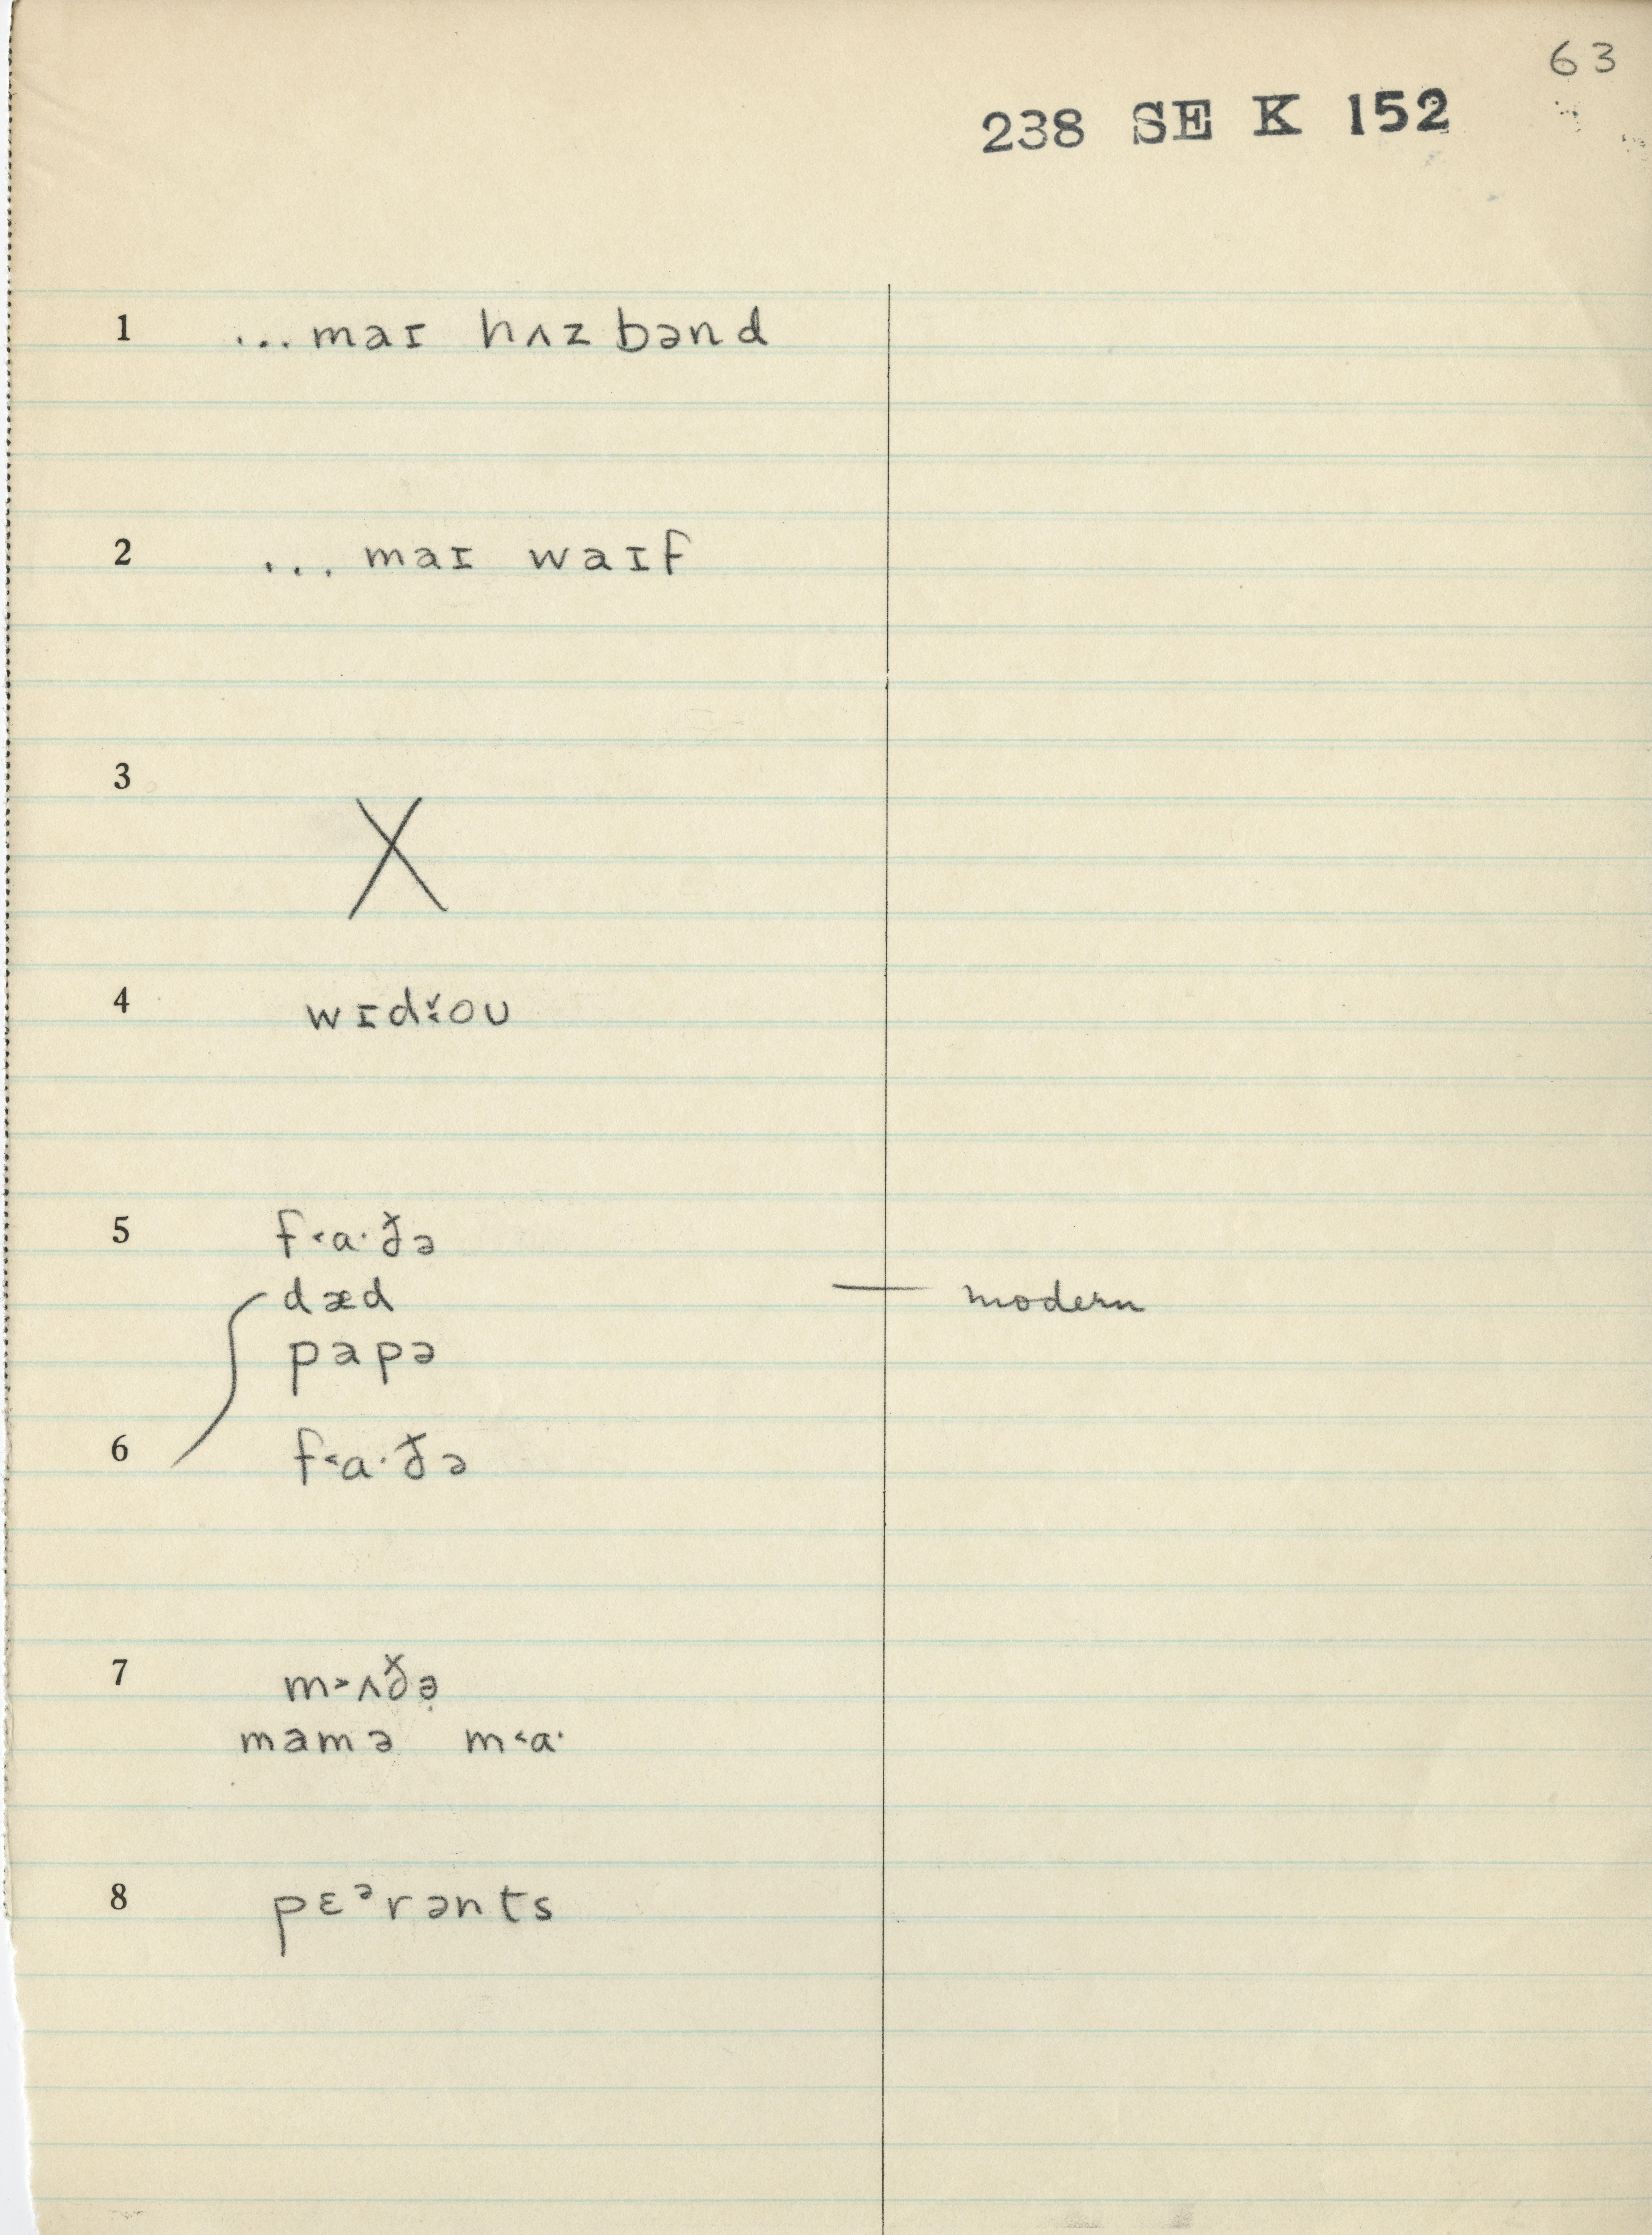 63
238 SE K 152
1 ...maɪ hʌzbənd
2 ... maɪ waɪf
3 X
4 wɪd˅˂oʊ
5 f˂ɑ·ð̌ə
dæd — modern
papə
6 f˂ɑ·ð̌ə
7 m˃ʌð̌ə̣
mamə m˂ɑ·
8 pɛᵊrənts